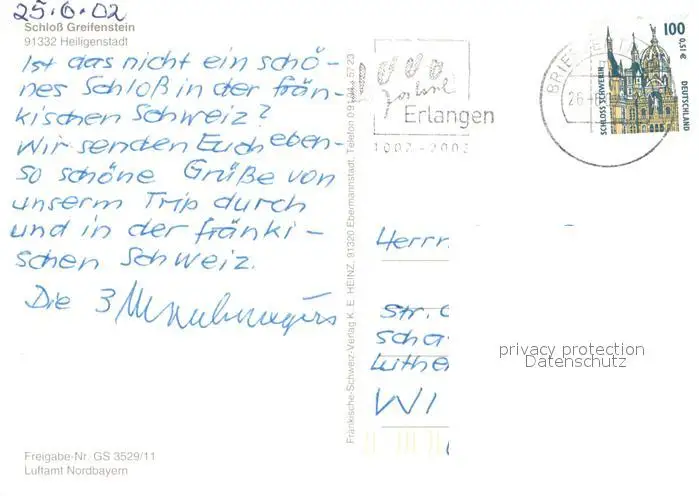 25.6.02
Schloß Greifenstein
91332 Heiligenstadt
Ist das nicht ein schö-
nes Schloß in der frän-
kischen Schweiz?
Wir senden Euch eben-
so schöne Grüße von
unserm Trip durch
und in der fränki-
schen Schweiz.
Die 3
Freigabe-Nr. GS 3529/11
Luftamt Nordbayern
Fränkische-Schweiz-Verlag K. E. HEINZ, 91320 Ebermannstadt, Telefon
Erlangen
1002-2002
BRIEF
26
100
0,51 €
SCHLOSS SCHWERIN
DEUTSCHLAND
Herrn
Str.
Scha
Luthe
WI
privacy protection
Datenschutz